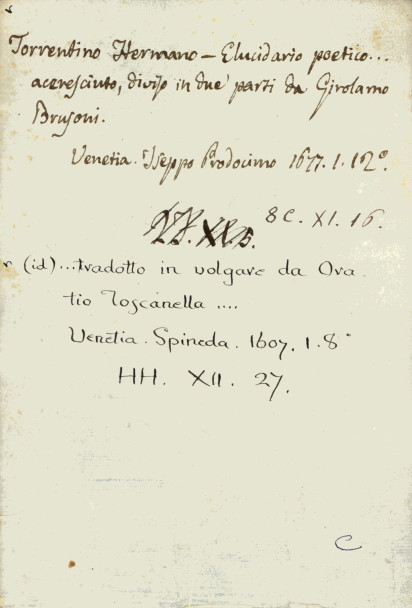 Torrentino Hermano – Elucidario poetico...
accresciuto, diviso in due parti da Girolamo
Brusoni.
Venetia. Iseppo Prodocimo 1677. 1. 12º.
8C. XI. 16.
(id)...tradotto in volgare da Ora
tio Toscanella ....
Venetia. Spineda. 1607. 1. 8º
HH. XII. 27.
C